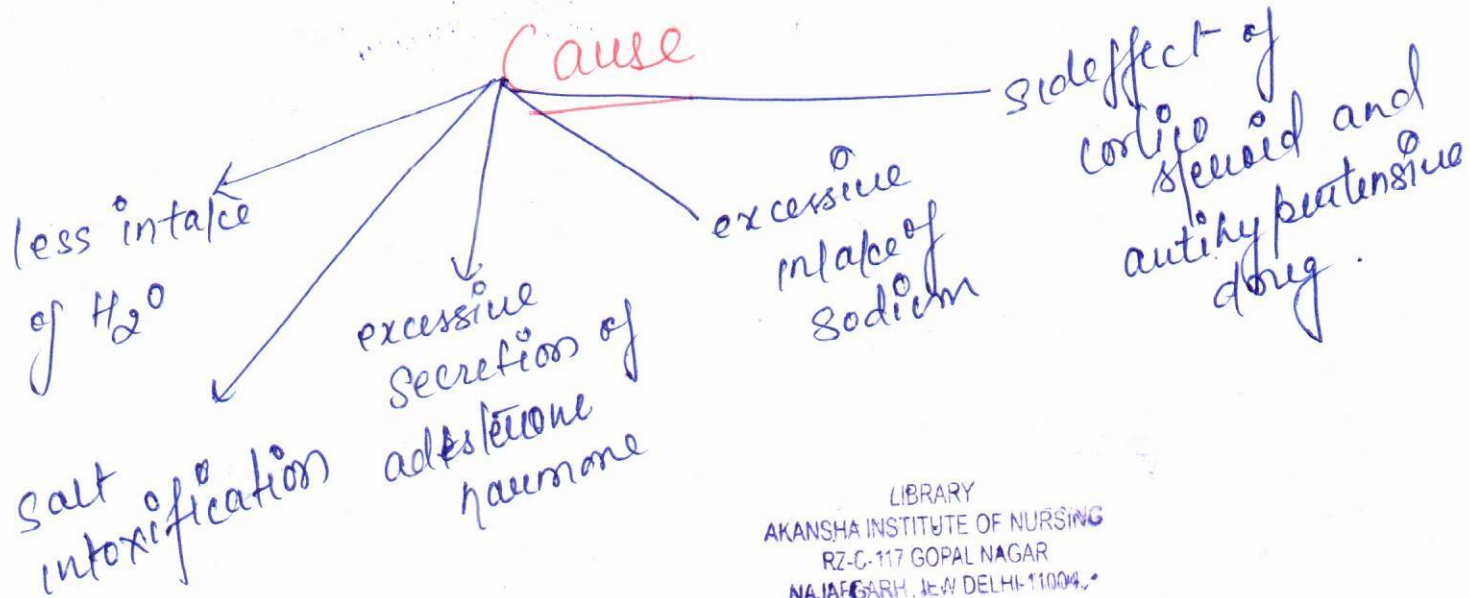 Cause
less intake
of H2O
salt
intoxification
excessive
secretion of
excessive
intake of
sodium
sideffect of
cortico
steroid and
antihypertensive
drug.
LIBRARY
AKANSHA INSTITUTE OF NURSING
RZ-C-117 GOPAL NAGAR
NAJAFGARH, NEW DELHI-11004